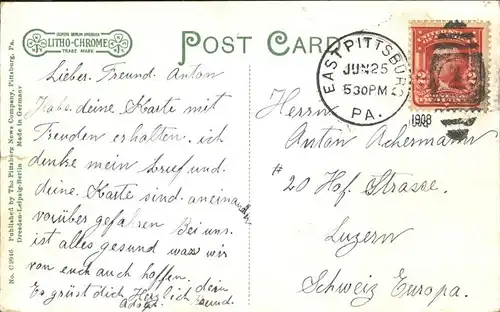 LEIPZIG BERLIN DRESDEN
LITHO-CHROME
TRADE MARK
POST CARD
No. C 2946 Published by The Pittsburg News Company, Pittsburg, Pa.
Dresden-Leipzig-Berlin Made in Germany
Lieber. Freund. Anton
Habe. deine. Karte mit
Freuden erhalten. ich
denke mein brief und.
deine. Karte sind. aneinander
vorüber gefahren Bei uns.
ist alles gesund was wir
von euch auch hoffen.
Es grüst dich Herzlich dein
Freund.
EAST PITTSBURG
JUN 25
530 PM
PA.
1908
Herrn
Anton Achermann
# 20 Hof. Strasse.
Luzern
Schweiz Europa.